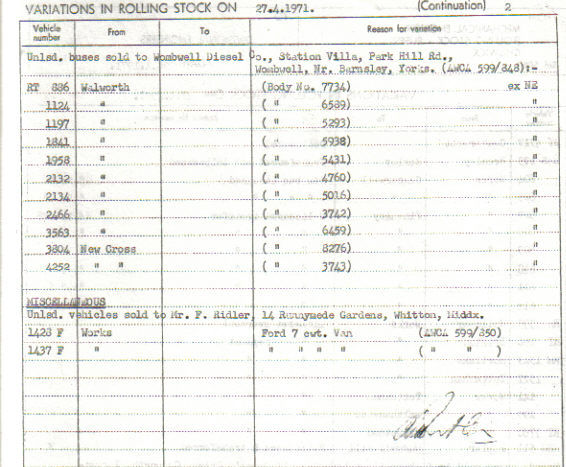 VARIATIONS IN ROLLING STOCK ON 27.4.1971. (Continuation) 2
Vehicle number From To Reason for variation
Unlsd. buses sold to Wombwell Diesel Co., Station Villa, Park Hill Rd.,
Wombwell, Nr. Barnsley, Yorks. (AWCA 599/848):-
RT 886 Walworth (Body No. 7734) ex NE
1124 " ( " 6589) "
1197 " ( " 5293) "
1841 " ( " 5938) "
1958 " ( " 5431) "
2132 " ( " 4760) "
2134 " ( " 5016) "
2466 " ( " 3742) "
3563 " ( " 6459) "
3804 New Cross ( " 8276) "
4252 " " ( " 3743) "
MISCELLANEOUS
Unlsd. vehicles sold to Mr. F. Ridler, 14 Runnymede Gardens, Whitton, Middx.
1423 F Works Ford 7 cwt. Van (AWCA 599/850)
1437 F " " " " " ( " " )